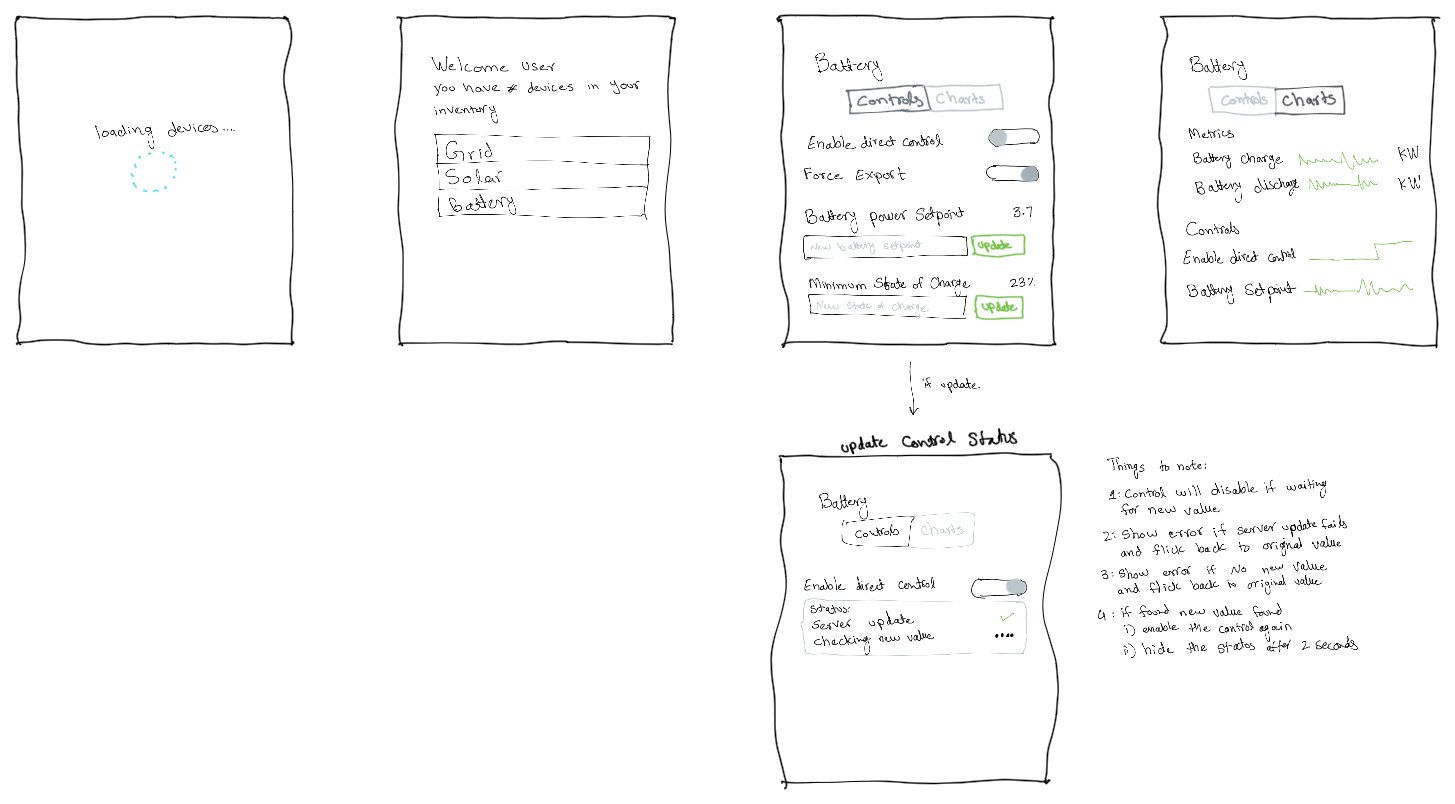 loading devices....
Welcome user
you have # devices in your
inventory
Grid
Solar
Battery
Battery
Controls Charts
Enable direct control
Force Export
Battery power Setpoint 3.7
New battery setpoint update
Minimum State of Charge 23%
New State of charge update
Battery
Controls Charts
Metrics
Battery charge KW
Battery discharge KW
Controls
Enable direct control
Battery Setpoint
if update.
update Control Status
Battery
Controls Charts
Enable direct control
Status:
Server update
checking new value ....
Things to note:
1: Control will disable if waiting
for new value
2: Show error if server update fails
and flick back to original value
3: Show error if No new value
and flick back to original value
4: if found new value found
i) enable the control again
ii) hide the status after 2 seconds